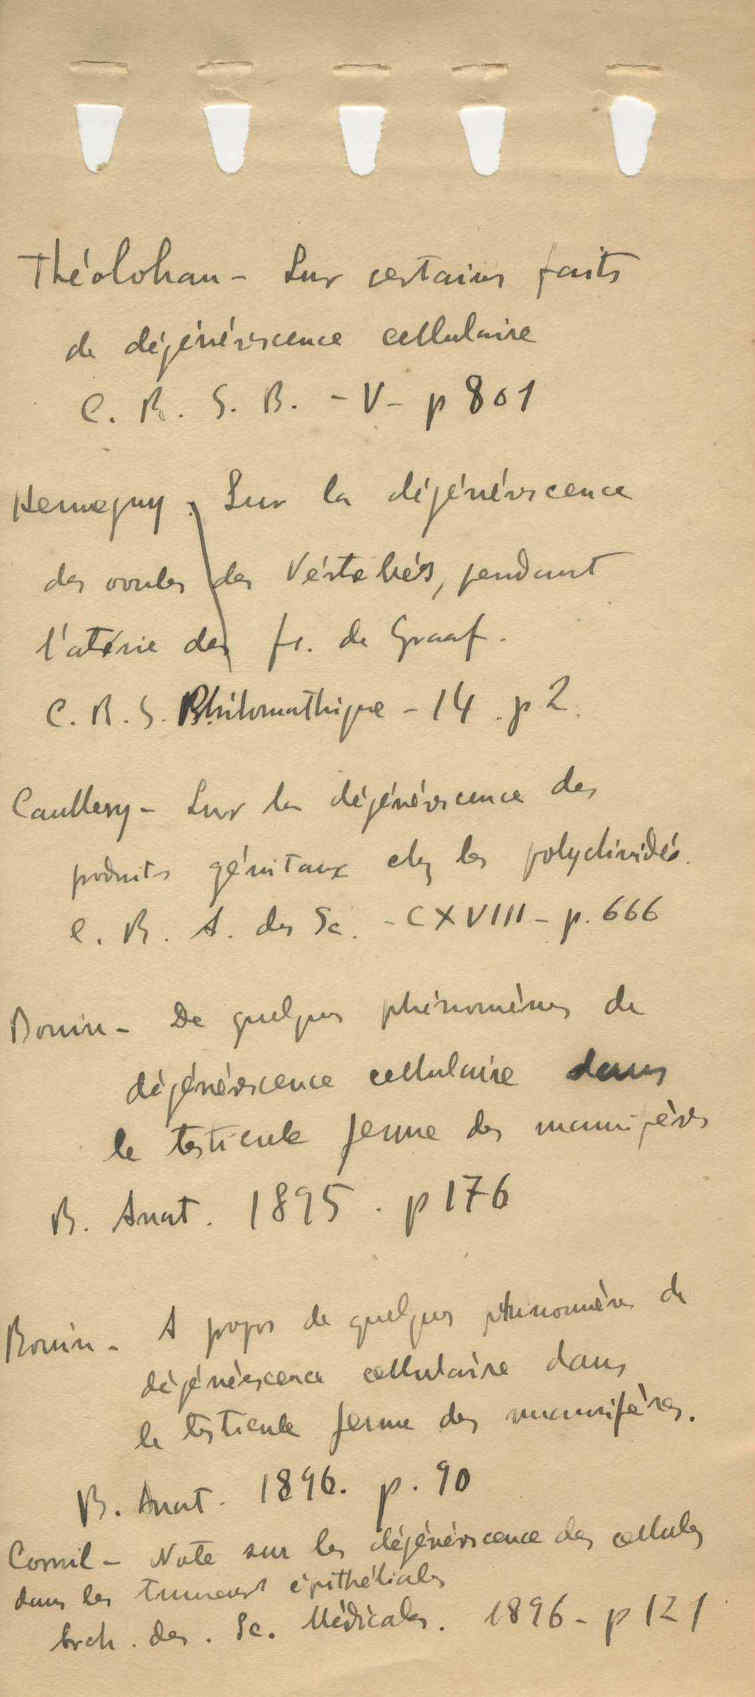 Théolohan - Sur certains faits
de dégénérescence cellulaire
C. R. S. B. - V - p 801
Henneguy. Sur la dégénérescence
des ovules des Vértebrés, pendant
l'atrésie des fr. de Graaf.
C. R. S. Philomathique - 14. p 2.
Caullery - Sur la dégénérescence des
produits génitaux chez les polyclinidés.
C. R. A. des Sc. - CXVIII - p. 666
Bouin - De quelques phénomènes de
dégénérescence cellulaire dans
le testicule jeune des mammifères
B. Anat. 1895. p 176
Bouin - A propos de quelques phénomènes de
dégénérescence cellulaire dans
le testicule jeune des mammifères.
B. Anat. 1896. p. 90
Cornil - Note sur les dégénérescence des cellules
dans les tumeurs épithéliales
Arch. des. Sc. Médicales. 1896 - p 121